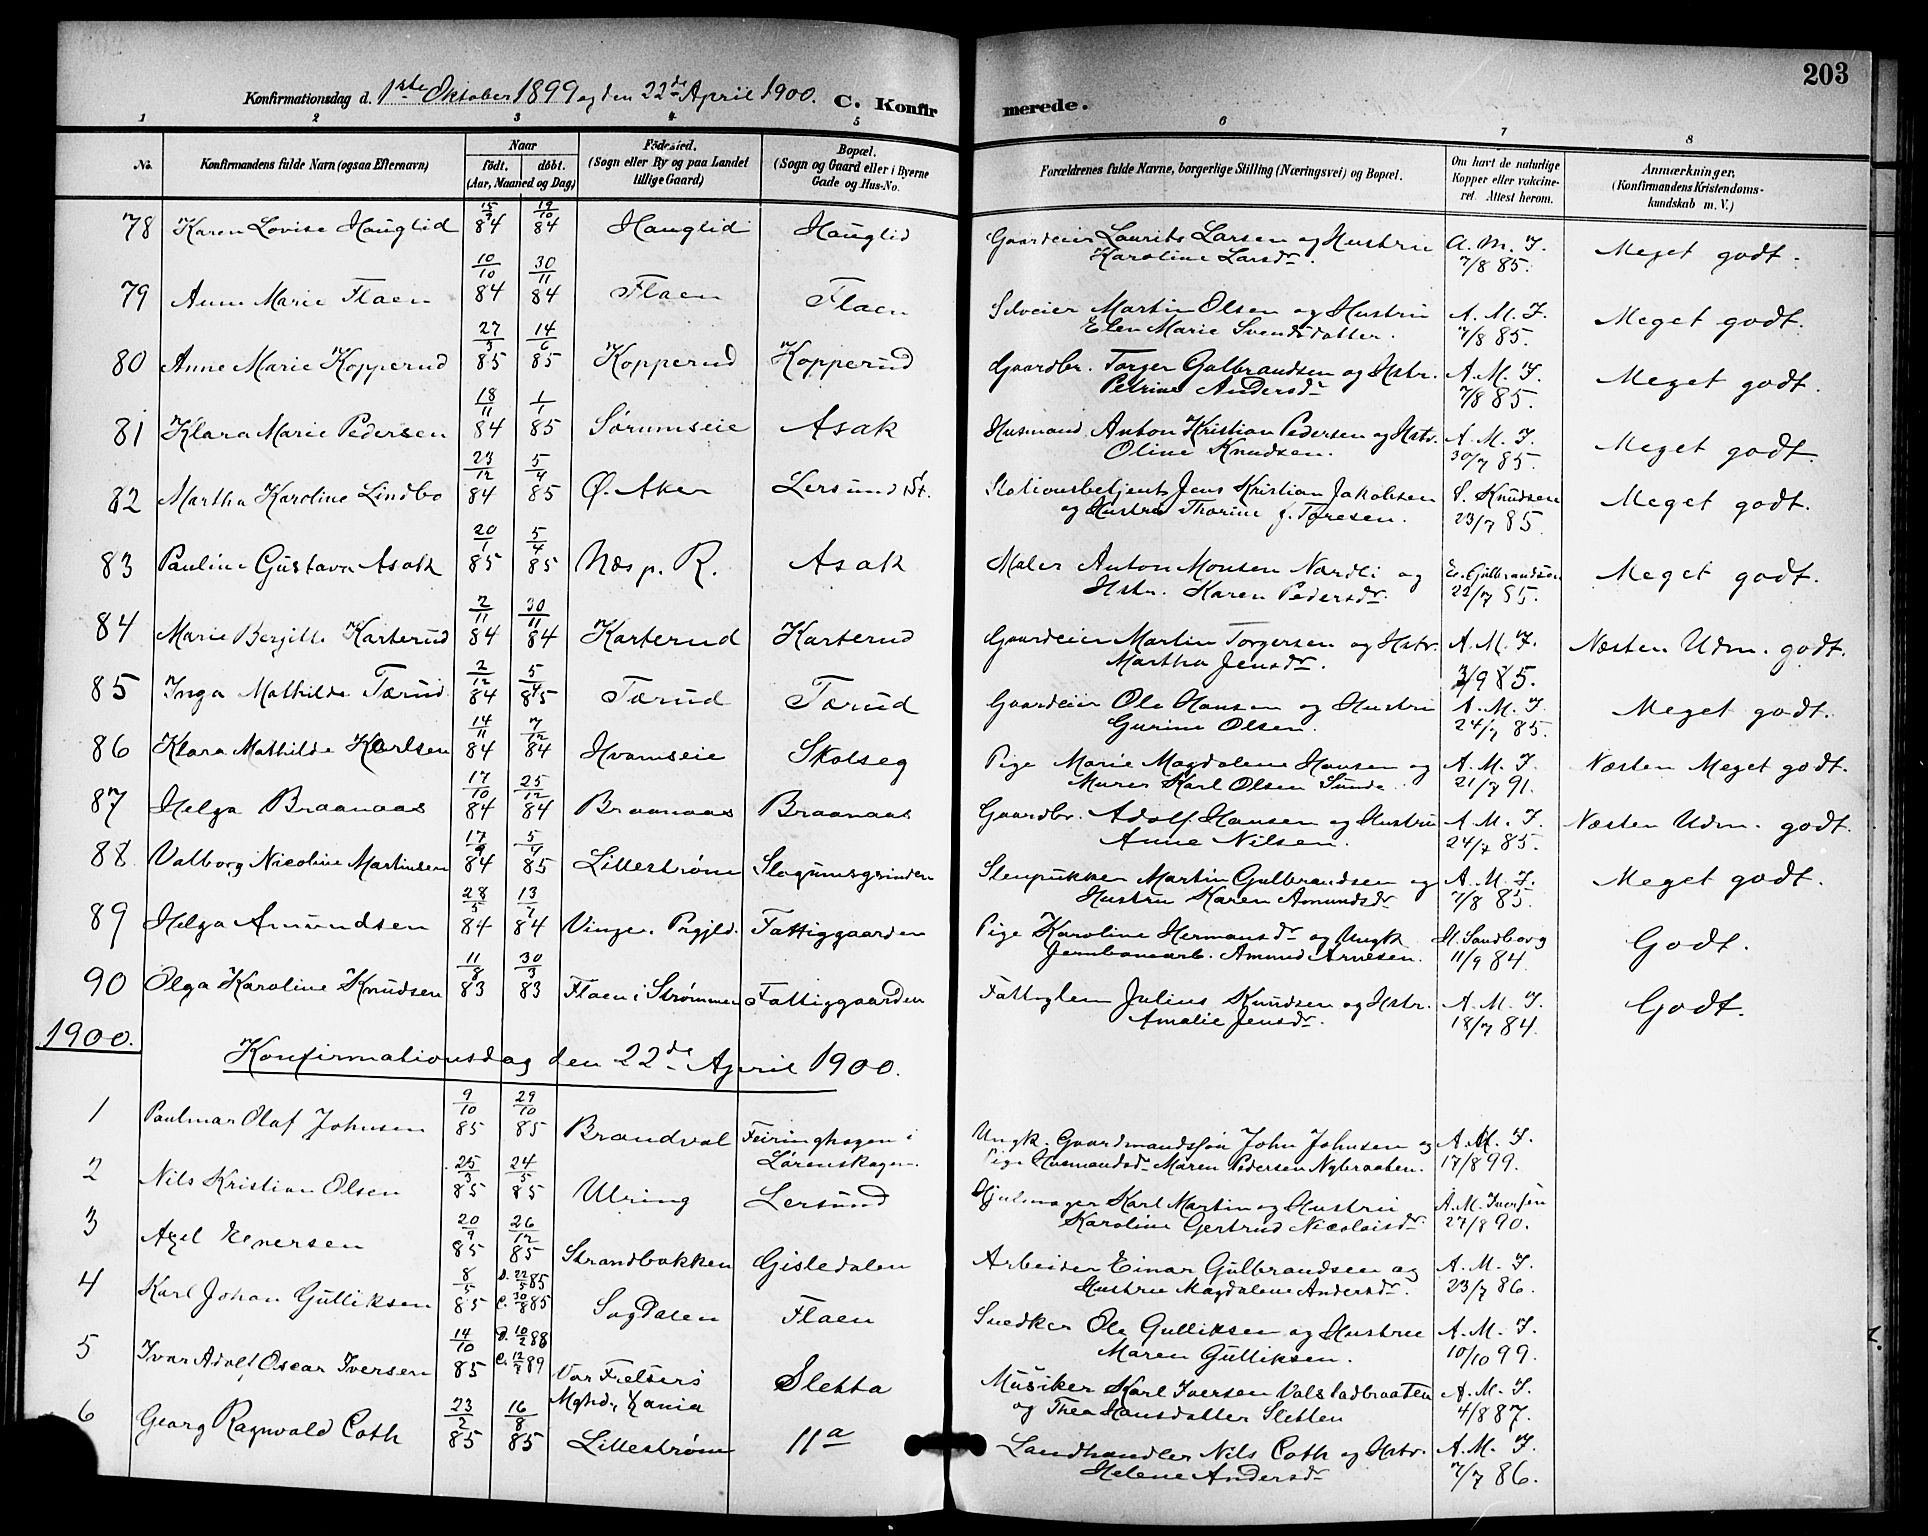 203
Konfirmationsdag d. 1ste Oktober 1899 og den 22de April 1900. C. Konfirmerede.
1 2 3 4 5 6 7 8
No. Konfirmandens fulde Navn (ogsaa Efternavn) Naar født. døbt. (Aar, Maaned og Dag) Fødested. (Sogn eller By og paa Landet tillige Gaard) Bopæl. (Sogn og Gaard eller i Byerne Gade og Hus-No. Forældrenes fulde Navne, borgerlige Stilling (Næringsvei) og Bopæl. Om havt de naturlige Kopper eller vakcineret. Attest herom. Anmærkninger, (Konfirmandens Kristendomskundskab m. V.)
78 Karen Lovise Hauglid 15/9 84 19/10 84 Hauglid Hauglid Gaardeier Laurits Larsen og Hustru Karoline Larsdr. A. M. I. 7/8 85. Meget godt.
79 Anne Marie Flaen 10/10 84 30/11 84 Flaen Flaen Selveier Martin Olsen og Hustru Elen Marie Svendsdatter. A. M. I. 7/8 85. Meget godt.
80 Anne Marie Kopperud 27/3 85 14/6 85 Kopperud Kopperud Gaardbr. Torger Gulbrandsen og Hstr. Petrine Andersdr A. M. I. 7/8 85. Meget godt.
81 Klara Marie Pedersen 18/11 84 1/1 85 Sørumseie Asak Husmand Anton Kristian Pedersen og Hstr. Oline Knudsen. A. M. I. 30/7 85. Meget godt.
82 Martha Karoline Lindbo 23/12 84 5/4 85 Ø. Aker Lersund St. Stationsbetjent Jens Kristian Jakobsen og Hustru Thorine f. Toresen. Knudsen 23/7 85. Meget godt.
83 Pauline Gustava Asak 20/1 85 5/4 85 Næs p. R. Asak Maler Anton Monsen Nordli og Hstr. Karen Pedersdr. Gulbrandsen 22/7 85. Meget godt.
84 Marie Bergitte Karterud 2/11 84 30/11 84 Karterud Karterud Gaardeier Martin Torgersen og Hstr. Martha Jensdr. A. M. I. 3/9 85. Næsten Udm. godt.
85 Inga Mathilde Tærud 2/12 84 5/4 85 Tærud Tærud Gaardeier Ole Hansen og Hustru Gurine Olsen. A. M. I. 24/7 85. Meget godt.
86 Klara Mathilde Karlsen 14/11 84 7/12 84 Hvamseie Skolseg Pige Marie Magdalene Hansen og Murer Karl Olsen Sunde. A. M. I. 21/7 91. Næsten Meget godt.
87 Helga Braanaas 17/10 84 25/12 84 Braanaas Braanaas Gaardbr. Adolf Hansen og Hustru Anne Nilsen. A. M. I. 24/7 85. Næsten Udm. godt.
88 Valborg Nicoline Martinsen 17/9 84 5/4 85 Lillestrøm Slogumsgrinden Stenpukker Martin Gulbrandsen og Hustru Karen Amundsdr A. M. I. 7/8 85. Meget godt.
89 Helga Amundsen 28/5 84 13/7 84 Vinger Prgjld. Fattiggaarden Pige Karoline Hermansdr og Ungk. Jernbanearb. Amund Arnesen. H. Sandborg 11/9 84. Godt.
90 Olga Karoline Knudsen 11/8 83 30/3 83 Flaen i Strømmen Fattiggaarden Fattiglem Julius Knudsen og Hstr. Amalie Jensdr. A. M. I. 18/7 84. Godt.
1900.
Konfirmationsdag den 22de April 1900.
1 Paulmar Olaf Johnsen 9/10 85 29/10 85 Brandval Feiringhagen i Lørenskogen. Ungk. Gaardmandssøn John Johnsen og Pige Husmandsdr Maren Pedersen Nybraaten. A. M. I. 17/8 99.
2 Nils Kristian Olsen 25/3 85 24/5 85 Ulring Lersund Hjulmager Karl Martin og Hustru Karoline Gertrud Nicolaisdr. A. M. Iversen 27/8 90.
3 Axel Einersen 20/9 85 26/12 85 Strandbakken Gisledalen Arbeider Einar Gulbrandsen og Hustru Magdalene Andersdr. A. M. I. 23/7 86.
4 Karl Johan Gulliksen 8/5 85 D. 22/5 85 C. 30/8 85 Sagdalen Flaen Snedker Ole Gulliksen og Hustru Maren Gulliksen. A. M. I. 10/10 99.
5 Ivar Adolf Oscar Iversen 14/10 85 D. 10/2 88 C. 12/7 89 Vor Frelsers Mghd., Xania Sletta Musiker Karl Iversen Valstadbraaten og Thea Hansdatter Sletten A. M. I. 4/8 87.
6 Georg Ragnvald Coth 23/2 85 16/8 85 Lillestrøm 11a Landhandler Nils Coth og Hstr. Helene Andersdr A. M. I. 7/7 86.